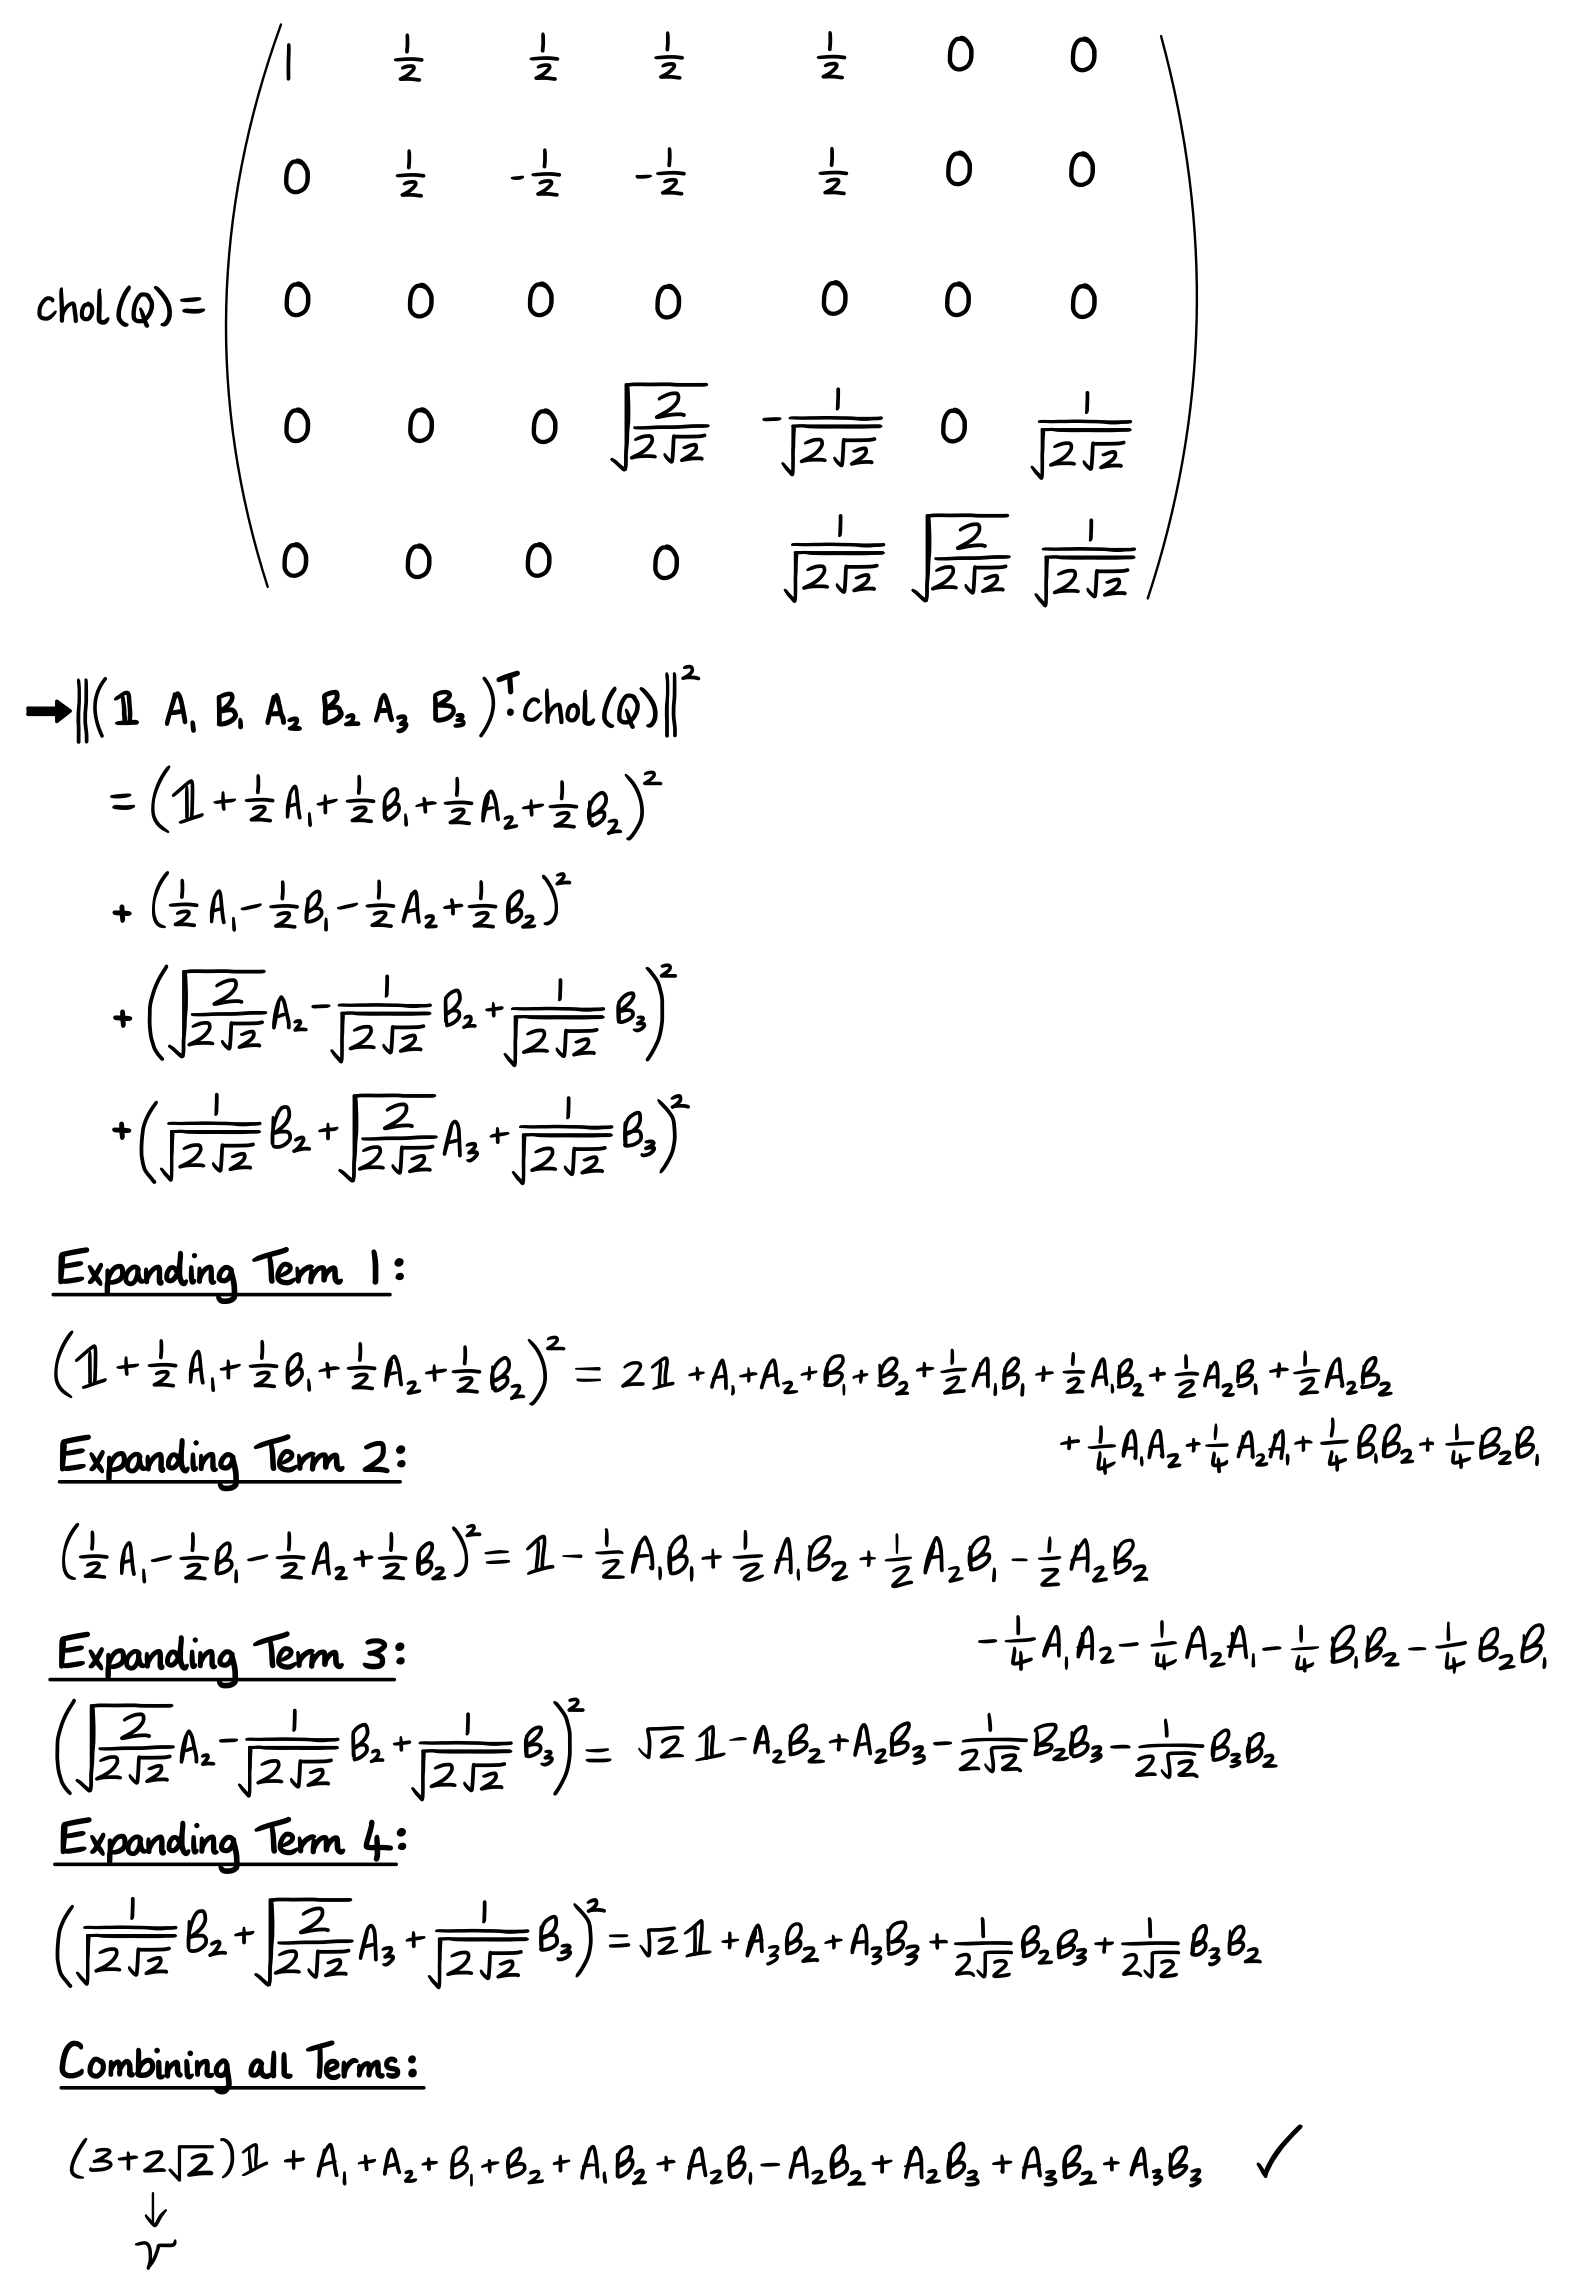 chol(Q) = ( 1 1/2 1/2 1/2 1/2 0 0
0 1/2 -1/2 -1/2 1/2 0 0
0 0 0 0 0 0 0
0 0 0 √(2/(2√2)) -1/√(2√2) 0 1/√(2√2)
0 0 0 0 1/√(2√2) √(2/(2√2)) 1/√(2√2) )
➡ ‖(𝟙 A₁ B₁ A₂ B₂ A₃ B₃)ᵀ· chol(Q)‖²
= (𝟙 + 1/2 A₁ + 1/2 B₁ + 1/2 A₂ + 1/2 B₂)²
+ (1/2 A₁ - 1/2 B₁ - 1/2 A₂ + 1/2 B₂)²
+ (√(2/(2√2)) A₂ - 1/√(2√2) B₂ + 1/√(2√2) B₃)²
+ (1/√(2√2) B₂ + √(2/(2√2)) A₃ + 1/√(2√2) B₃)²
Expanding Term 1:
(𝟙 + 1/2 A₁ + 1/2 B₁ + 1/2 A₂ + 1/2 B₂)² = 2𝟙 + A₁ + A₂ + B₁ + B₂ + 1/2 A₁B₁ + 1/2 A₁B₂ + 1/2 A₂B₁ + 1/2 A₂B₂
+ 1/4 A₁A₂ + 1/4 A₂A₁ + 1/4 B₁B₂ + 1/4 B₂B₁
Expanding Term 2:
(1/2 A₁ - 1/2 B₁ - 1/2 A₂ + 1/2 B₂)² = 𝟙 - 1/2 A₁B₁ + 1/2 A₁B₂ + 1/2 A₂B₁ - 1/2 A₂B₂
- 1/4 A₁A₂ - 1/4 A₂A₁ - 1/4 B₁B₂ - 1/4 B₂B₁
Expanding Term 3:
(√(2/(2√2)) A₂ - 1/√(2√2) B₂ + 1/√(2√2) B₃)² = √2 𝟙 - A₂B₂ + A₂B₃ - 1/(2√2) B₂B₃ - 1/(2√2) B₃B₂
Expanding Term 4:
(1/√(2√2) B₂ + √(2/(2√2)) A₃ + 1/√(2√2) B₃)² = √2 𝟙 + A₃B₂ + A₃B₃ + 1/(2√2) B₂B₃ + 1/(2√2) B₃B₂
Combining all Terms:
(3+2√2)𝟙 + A₁ + A₂ + B₁ + B₂ + A₁B₂ + A₂B₁ - A₂B₂ + A₂B₃ + A₃B₂ + A₃B₃ ✓
↓
ν